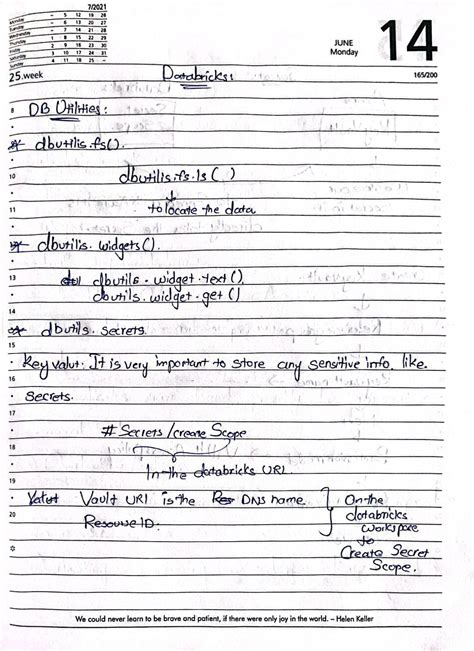 7/2021
Monday - 5 12 19 26
- 6 13 20 27
- 7 14 21 28
1 8 15 22 29
2 9 16 23 30
3 10 17 24 31
4 11 18 25 -
JUNE
Monday
14
25.week
165/200
Databricks:
8 DB Utilities:
dbutilis.fs().
10 dbutilis.fs.ls ( )
11 to locate the data
dbutilis. widgets().
13 dbutils. widget.text().
dbutils. widget.get ()
14
dbutils. secrets.
15
Key valut: It is very important to store any sensitive info. like.
16
Secrets.
17
# Secrets /create Scope
18
In the databricks URL.
19
Vault URI is the DNS name.
20 Resource ID:
On the
databricks
workspace
to
Create Secret
Scope.
We could never learn to be brave and patient, if there were only joy in the world. – Helen Keller